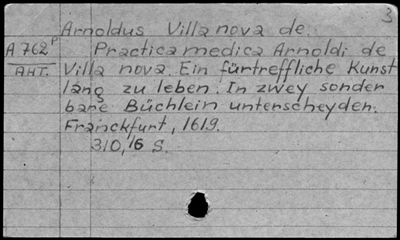 3
Arnoldus Villa nova de.
A 762 P Practica medica Arnoldi de
AHT. Villa nova. Ein fürtreffliche Kunst
lang zu leben. In zwey sonder
bare Büchlein unterscheyden.
Franckfurt, 1619.
310,16 S.